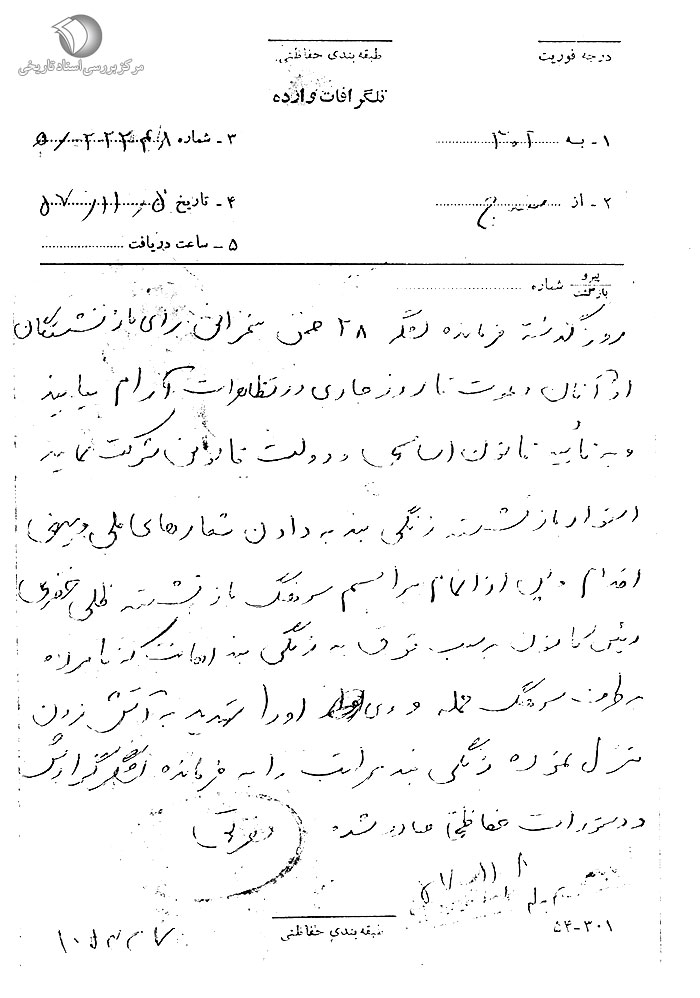 مرکز بررسی اسناد تاریخی
درجه فوریت
طبقه‌بندی حفاظتی
تلگرافات وارده
۱ - به ۳۰۱
۳ - شماره
۲ - از سنندج
۴ - تاریخ ۵۷/۱۱/۵
۵ - ساعت دریافت
پیرو
بازگشت
شماره
روز گذشته فرمانده لشگر ۲۸ ضمن سخنرانی برای بازنشستگان
از آنان دعوت تا روز جاری در تظاهرات آرام بیایند
و به تأیید قانون اساسی و دولت قانونی شرکت نمایند
استوار بازنشسته زنگی بند به دادن شعارهای ملی و میهنی
اقدام و پس از اتمام مراسم سرهنگ بازنشسته
رئیس کانون بسبب فوق به زنگی بند اهانت که نامبرده
بطرف سرهنگ حمله و وی او را تهدید به آتش زدن
منزل نموده زنگی بند مراتب را به فرمانده لشگر گزارش
و دستورات حفاظتی صادر شده
طبقه‌بندی حفاظتی
۵۴-۳۰۱